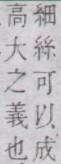 細絲可以成
高大之義也